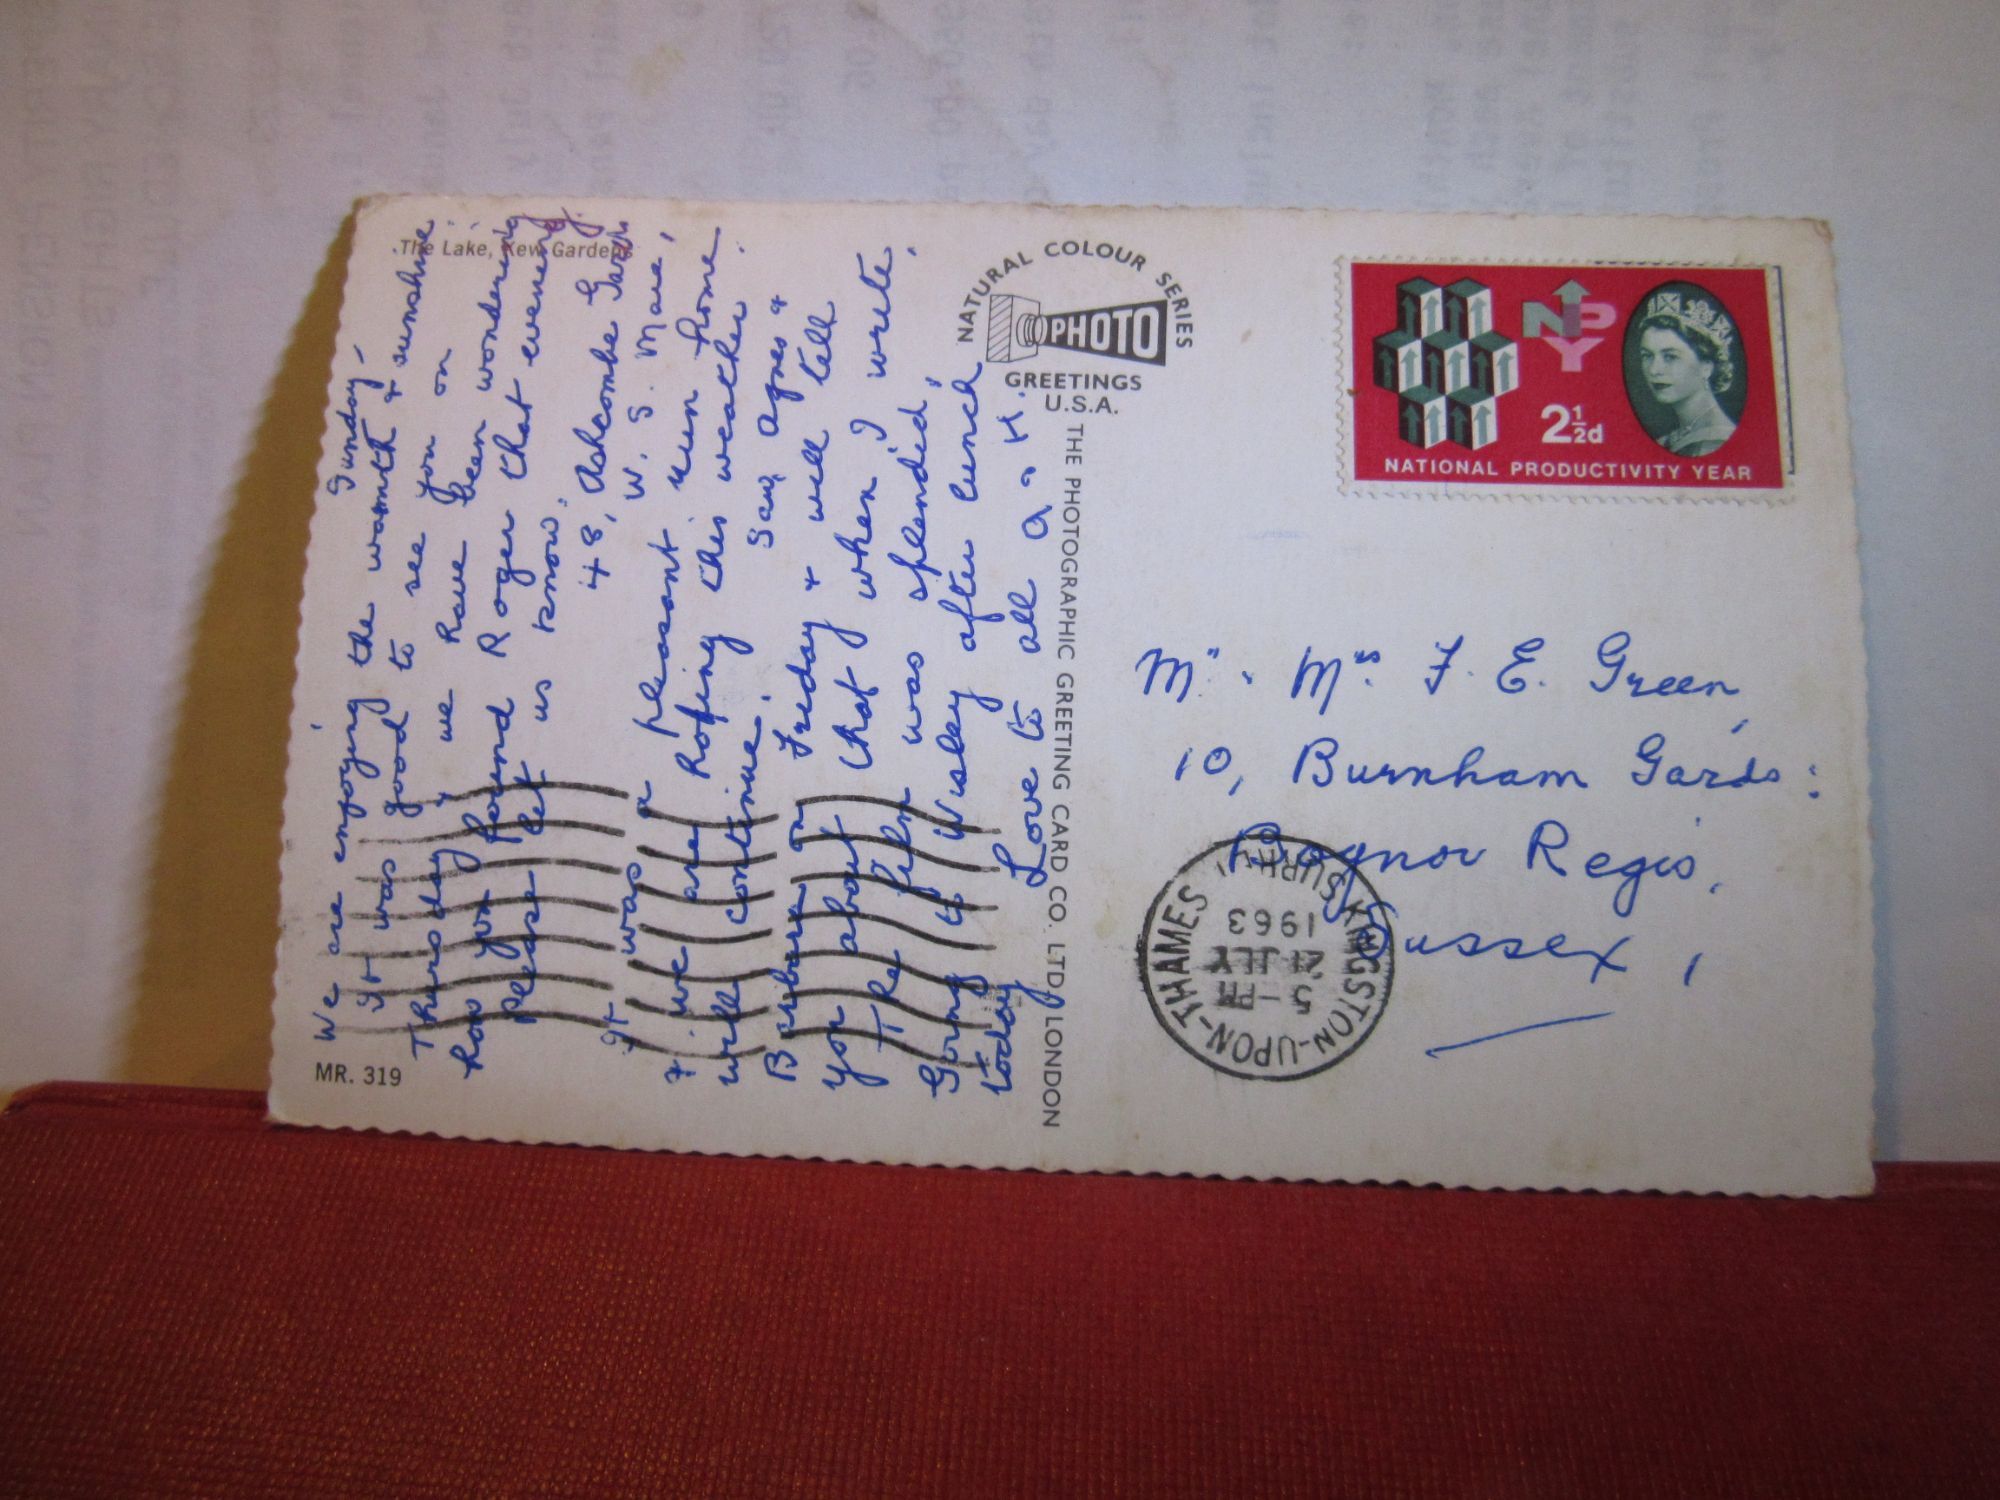 The Lake, Kew Gardens
Sunday -
We are enjoying the warmth & sunshine.
It was good to see you on
Thursday & we have been wondering
how you found Roger that evening.
Please let us know.
48, Ashcombe Gard
W. S. Mare,
It was a pleasant run home
& we are hoping this weather
will continue.
Saw Agnes &
Barbara on Friday & will tell
you about that when I write.
The film was splendid,
Going to Wisley after lunch
today
Love to all
H.
MR. 319
NATURAL COLOUR SERIES
PHOTO
GREETINGS
U.S.A.
THE PHOTOGRAPHIC GREETING CARD CO. LTD. LONDON
NPY
2½d
NATIONAL PRODUCTIVITY YEAR
Mr. Mrs. F. E. Green,
10, Burnham Gards:
Bognor Regis,
Sussex,
KINGSTON-UPON-THAMES
5 - PM
21 JLY
1963